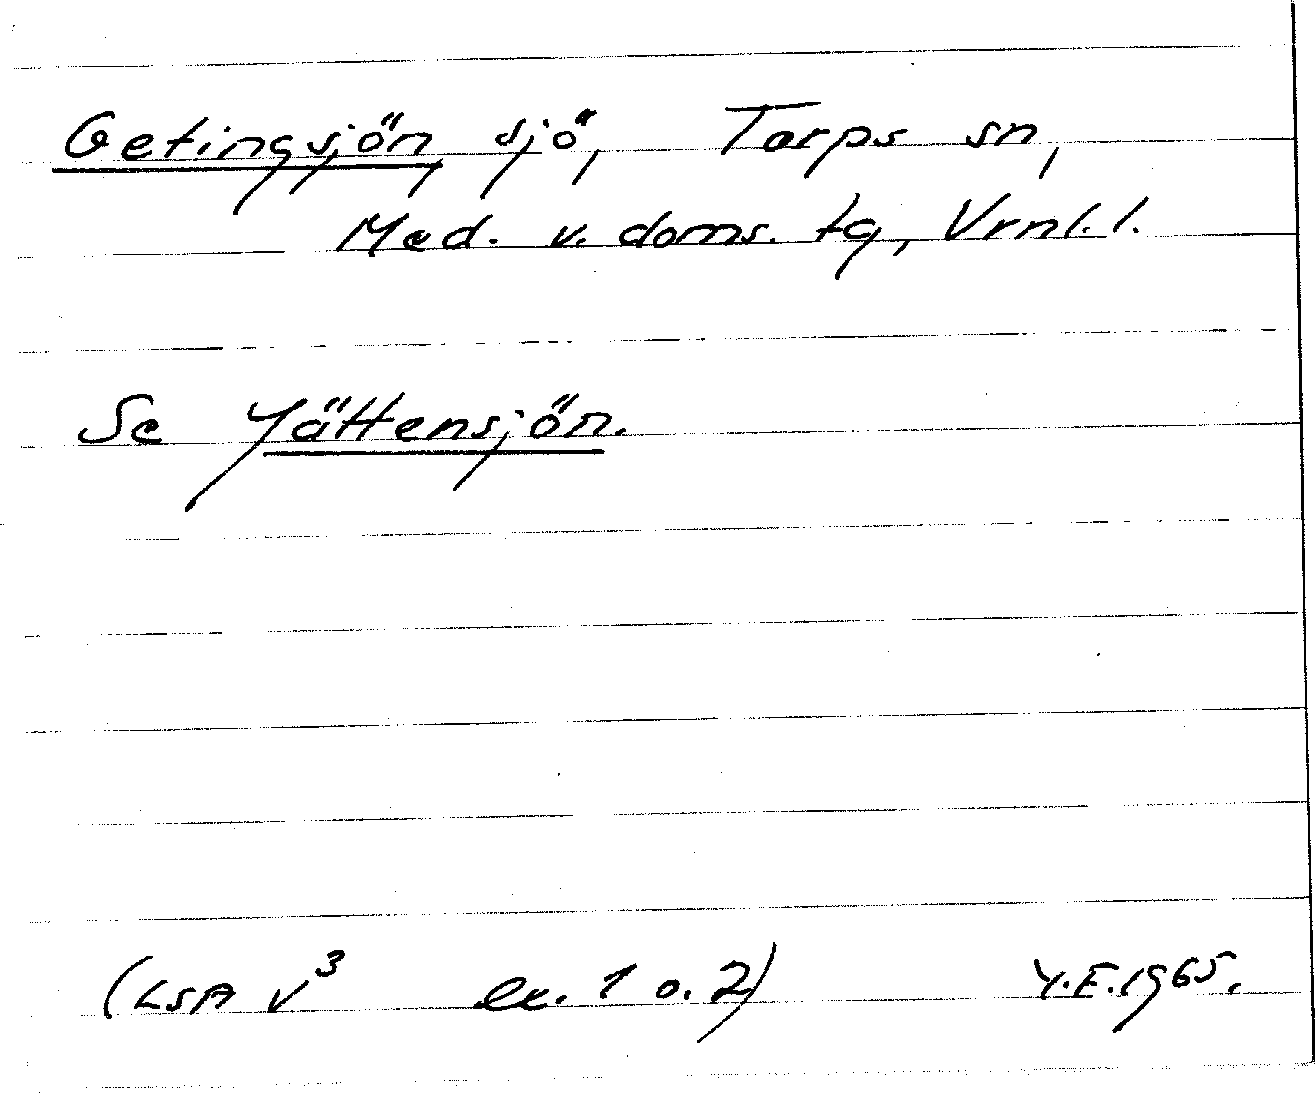 Getingsjön, sjö, Torps sn,
Med. v. doms. tg, Vrnl. l.
Se Yättensjön.
(LSA V³ ex. 1 o. 2) Y.E. 1965.